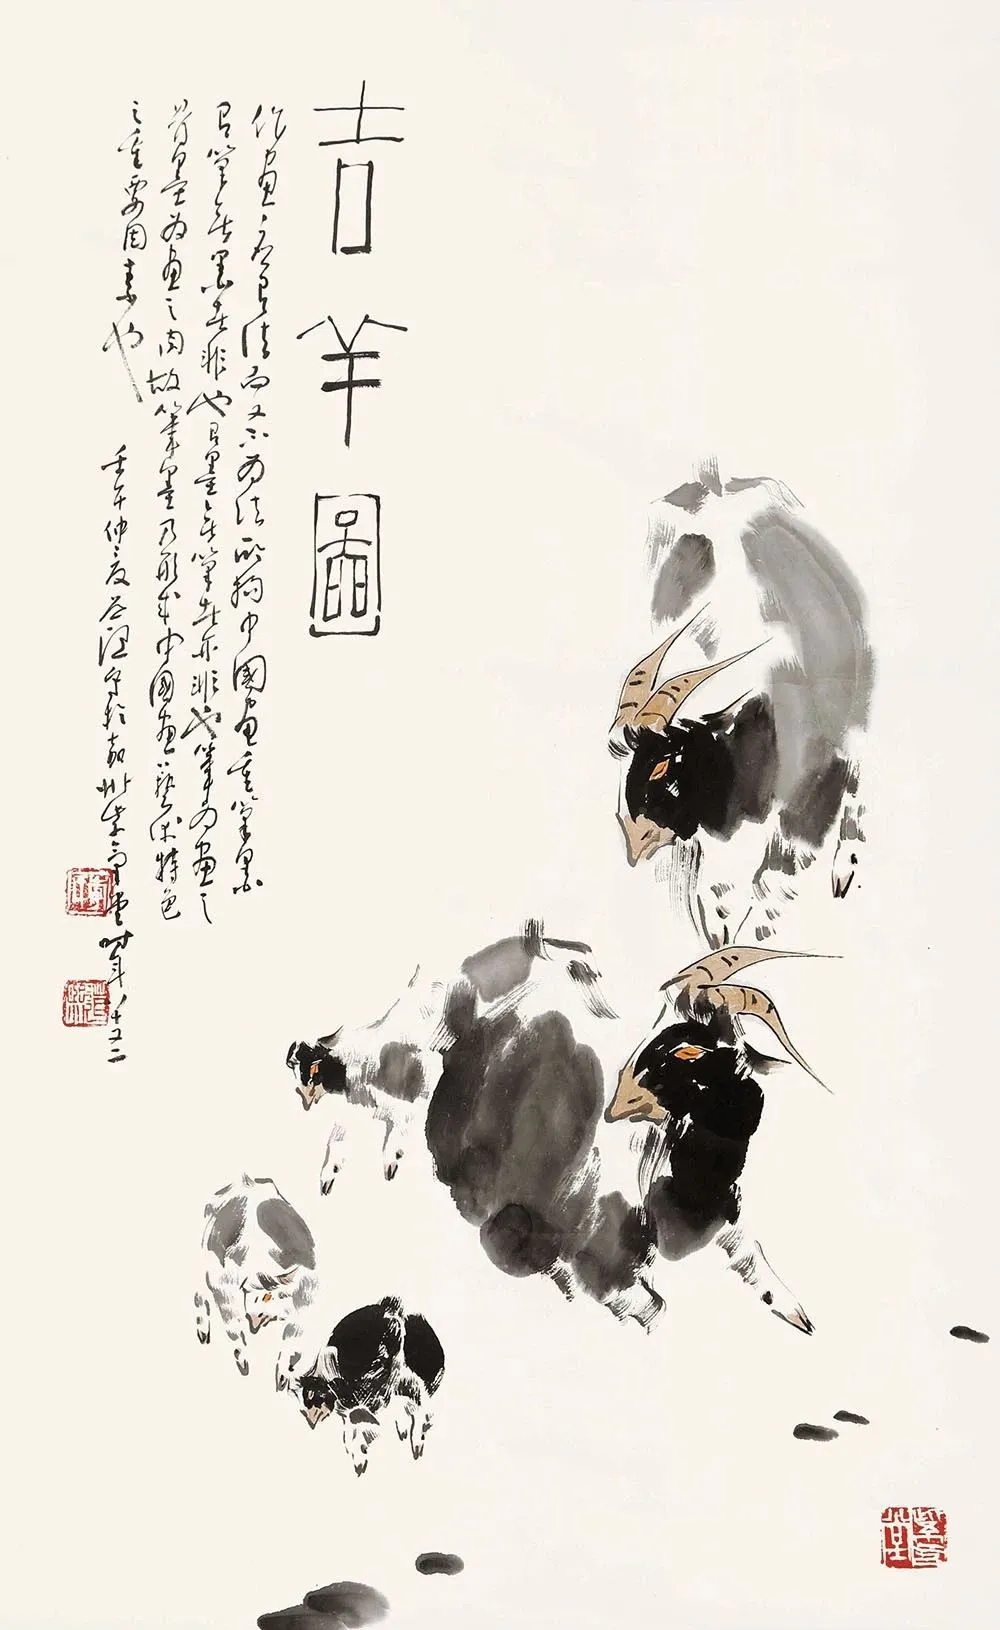 吉羊圖
作畫有法而又不為法所拘中國畫重筆墨
有筆無墨者非也有墨無筆者亦非也筆為畫之
骨墨為畫之肉故筆墨乃形成中國畫藝術特色
之重要因素也
壬午仲夏於州紫堂時年八十又二